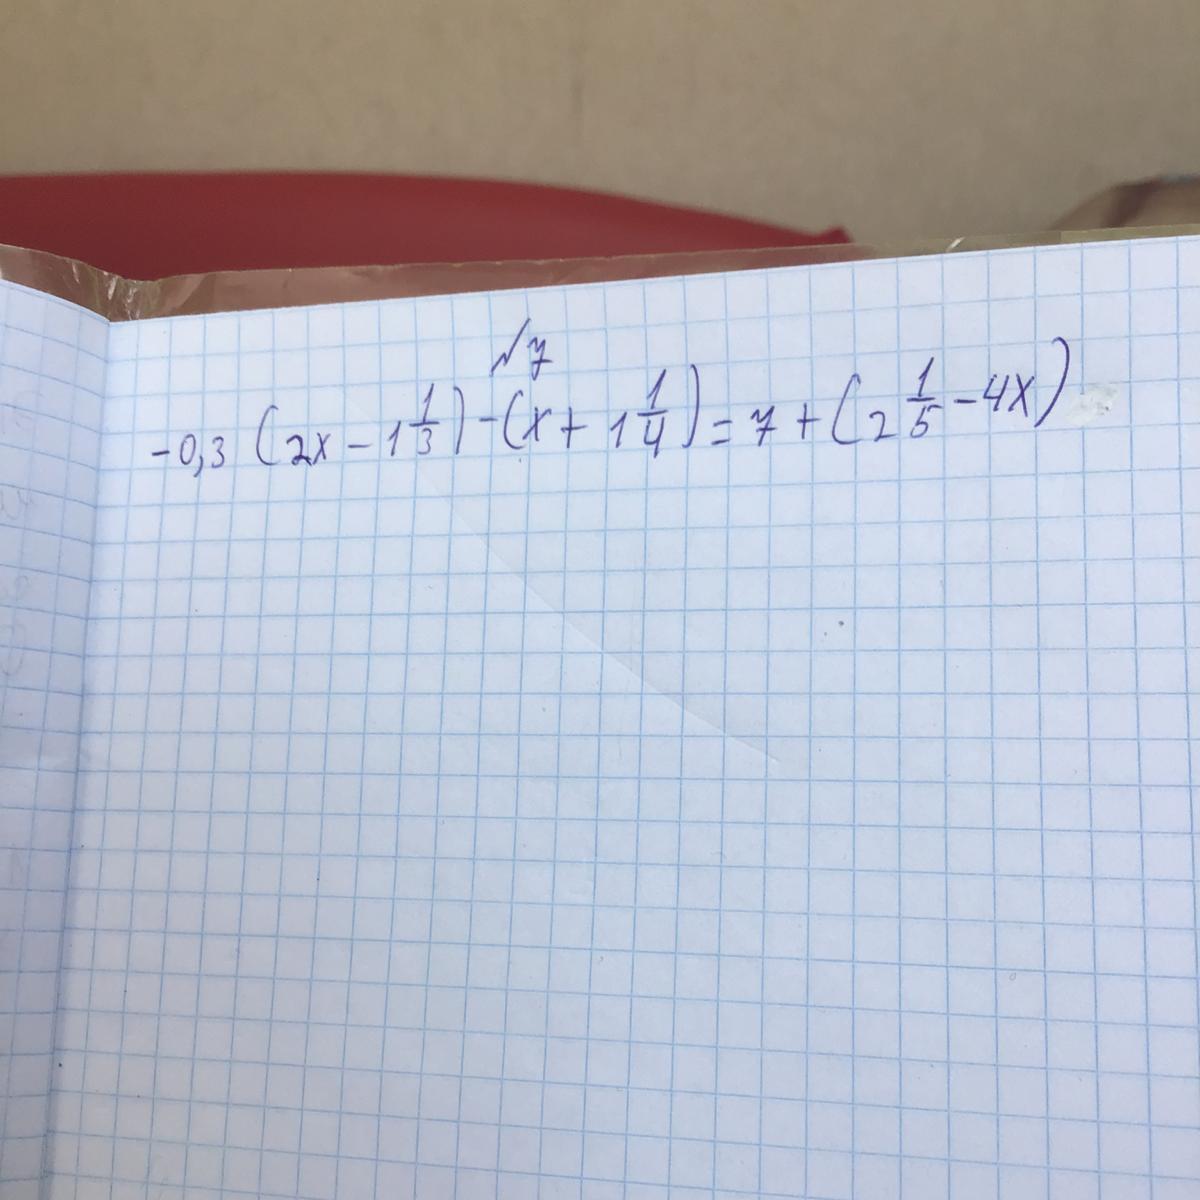 №7
-0,3 (2x - 1 1/3) - (x + 1 1/4) = 7 + (2 1/5 - 4x)